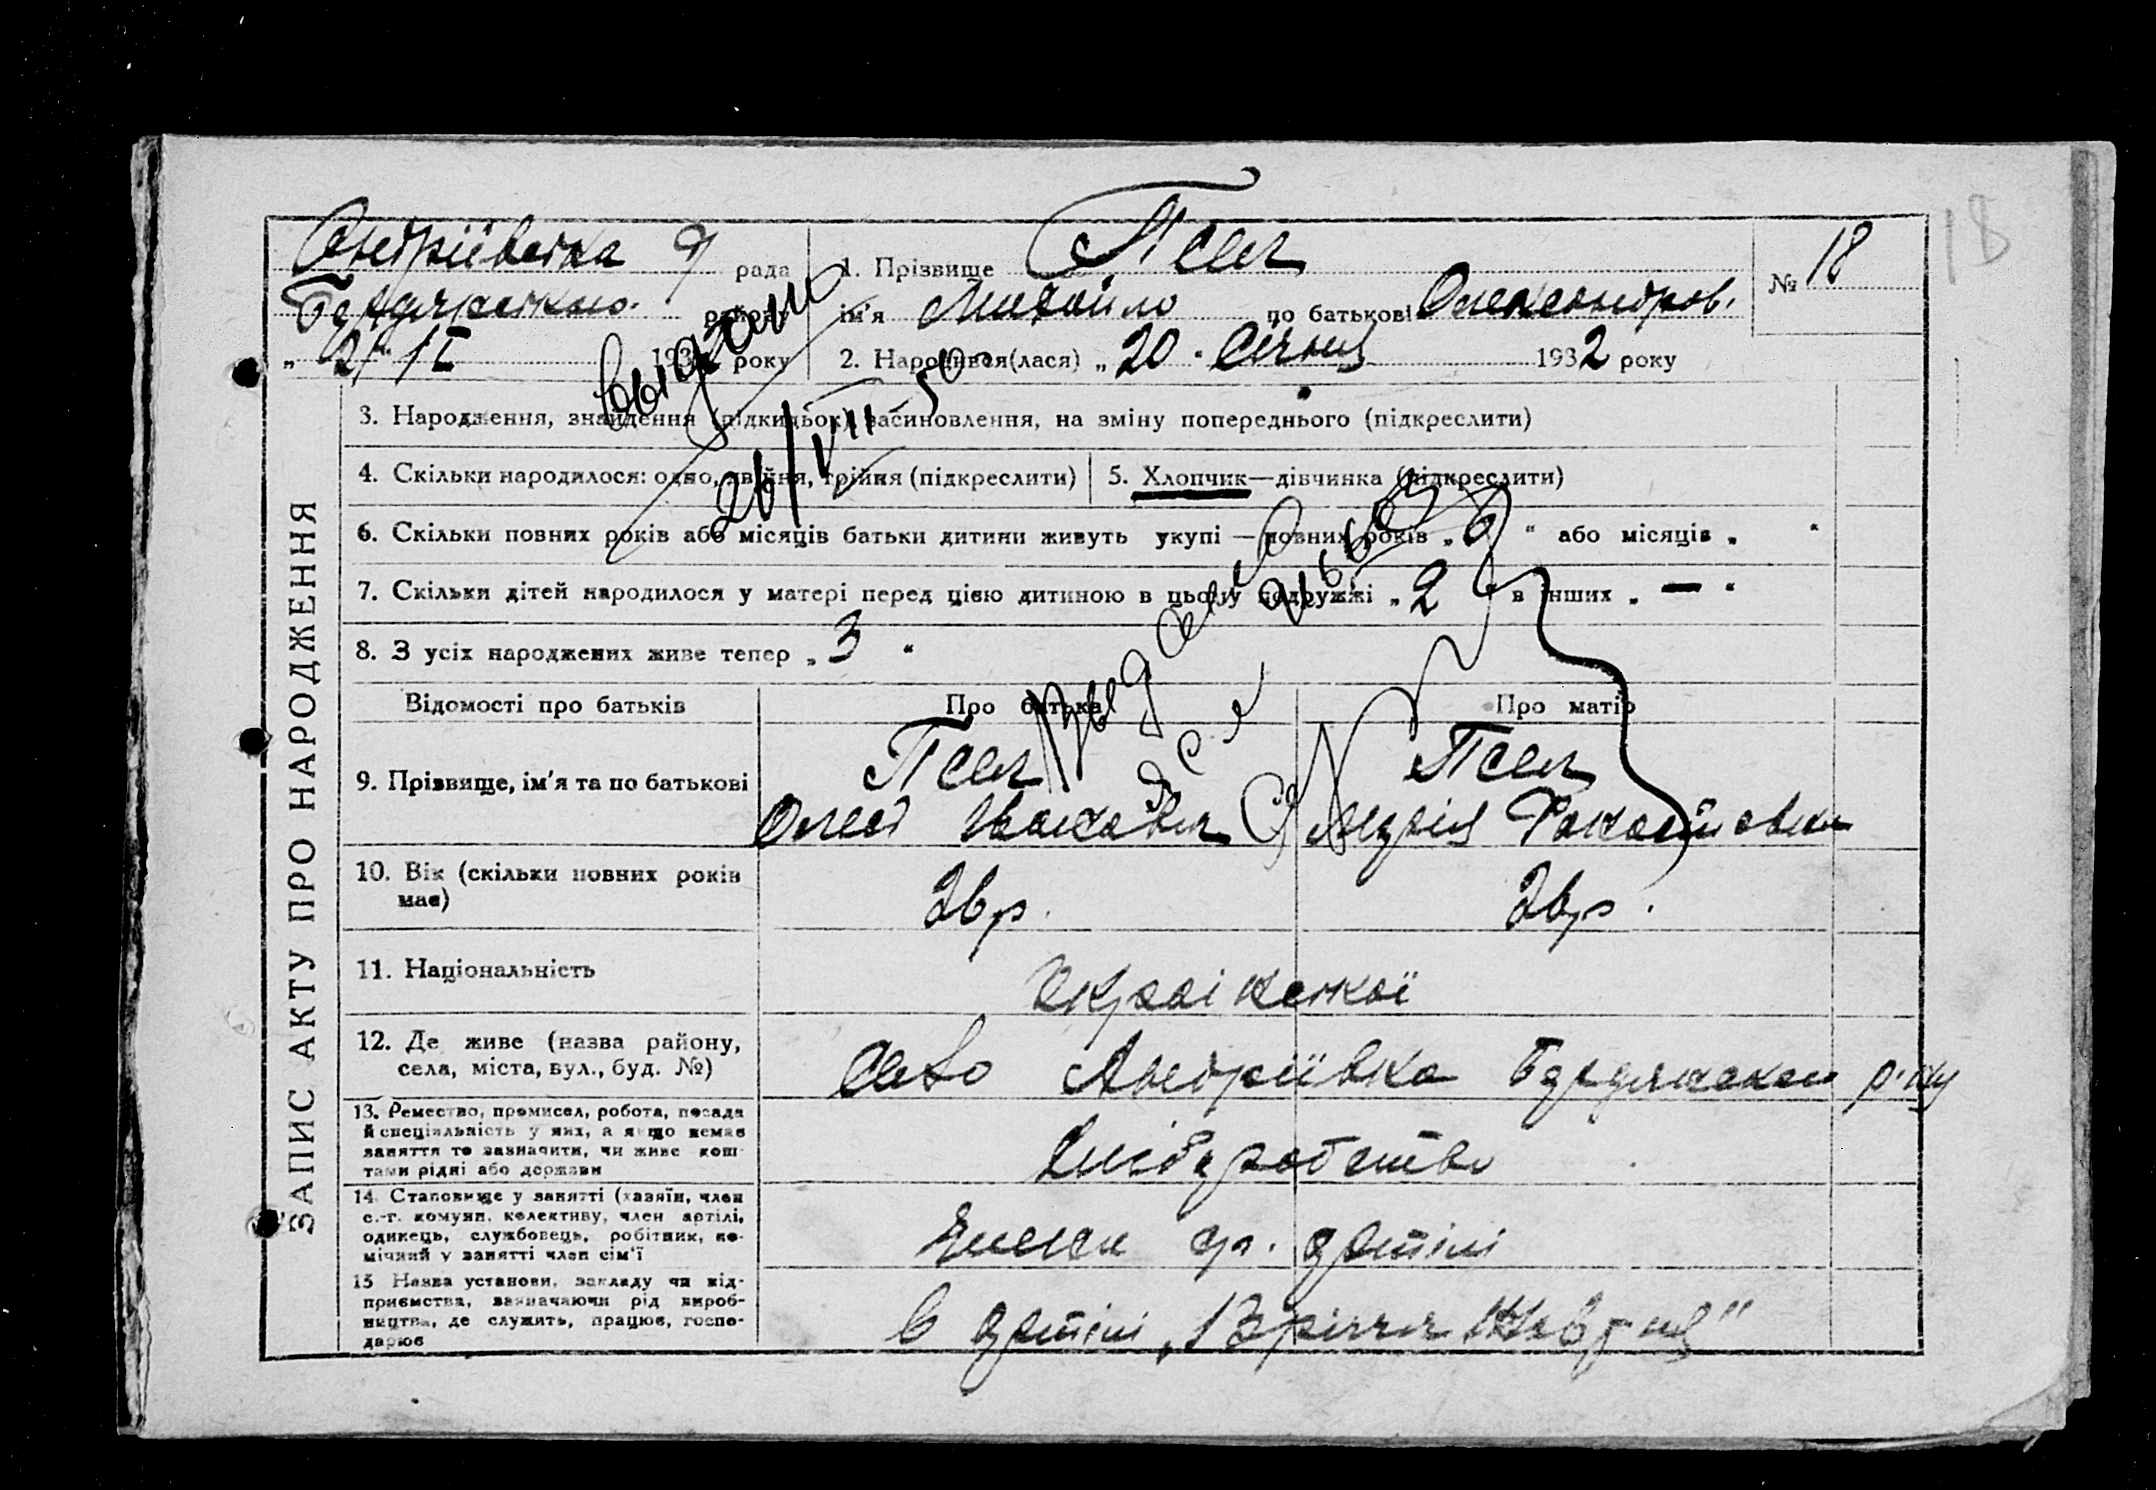 Андріївська рада
1. Прізвище Псел
№ 18
18
Бердянського району
ім'я Михайло по батькові Олександров.
„ 21 “ І 1932 року
2. Народився(лася) „ 20 “ Січня 1932 року
видано
26/VII
3. Народження, знайдення (підкидьок), засиновлення, на зміну попереднього (підкреслити)
4. Скільки народилося: одно, двійня, трійня (підкреслити)
5. Хлопчик—дівчинка (підкреслити)
6. Скільки повних років або місяців батьки дитини живуть укупі — повних років „ 6 “ або місяців „ “
7. Скільки дітей народилося у матері перед цією дитиною в цьому подружжі „ 2 “ в інших „ — “
8. З усіх народжених живе тепер „ 3 “
Відомості про батьків
Про батька
Про матір
9. Прізвище, ім'я та по батькові
Псел
Псел
Марія
10. Вік (скільки повних років має)
26 р.
26 р.
11. Національність
Української
12. Де живе (назва району, села, міста, вул., буд. №)
Село Андріївка Бердянського р-ну
13. Ремество, промисел, робота, посада й спеціяльність у них, а якщо немає заняття то зазначити, чи живе коштами рідні або держави
Хліборобство
14. Становище у занятті (хазяїн, член с.-г. комуни, колективу, член артілі, одинець, службовець, робітник, помічний у занятті член сім'ї
Члени артілі
15 Назва установи, закладу чи підприємства, зазначаючи рід виробництва, де служить, працює, господарює
в артілі „13 річчя Жовтня“
ЗАПИС АКТУ ПРО НАРОДЖЕННЯ